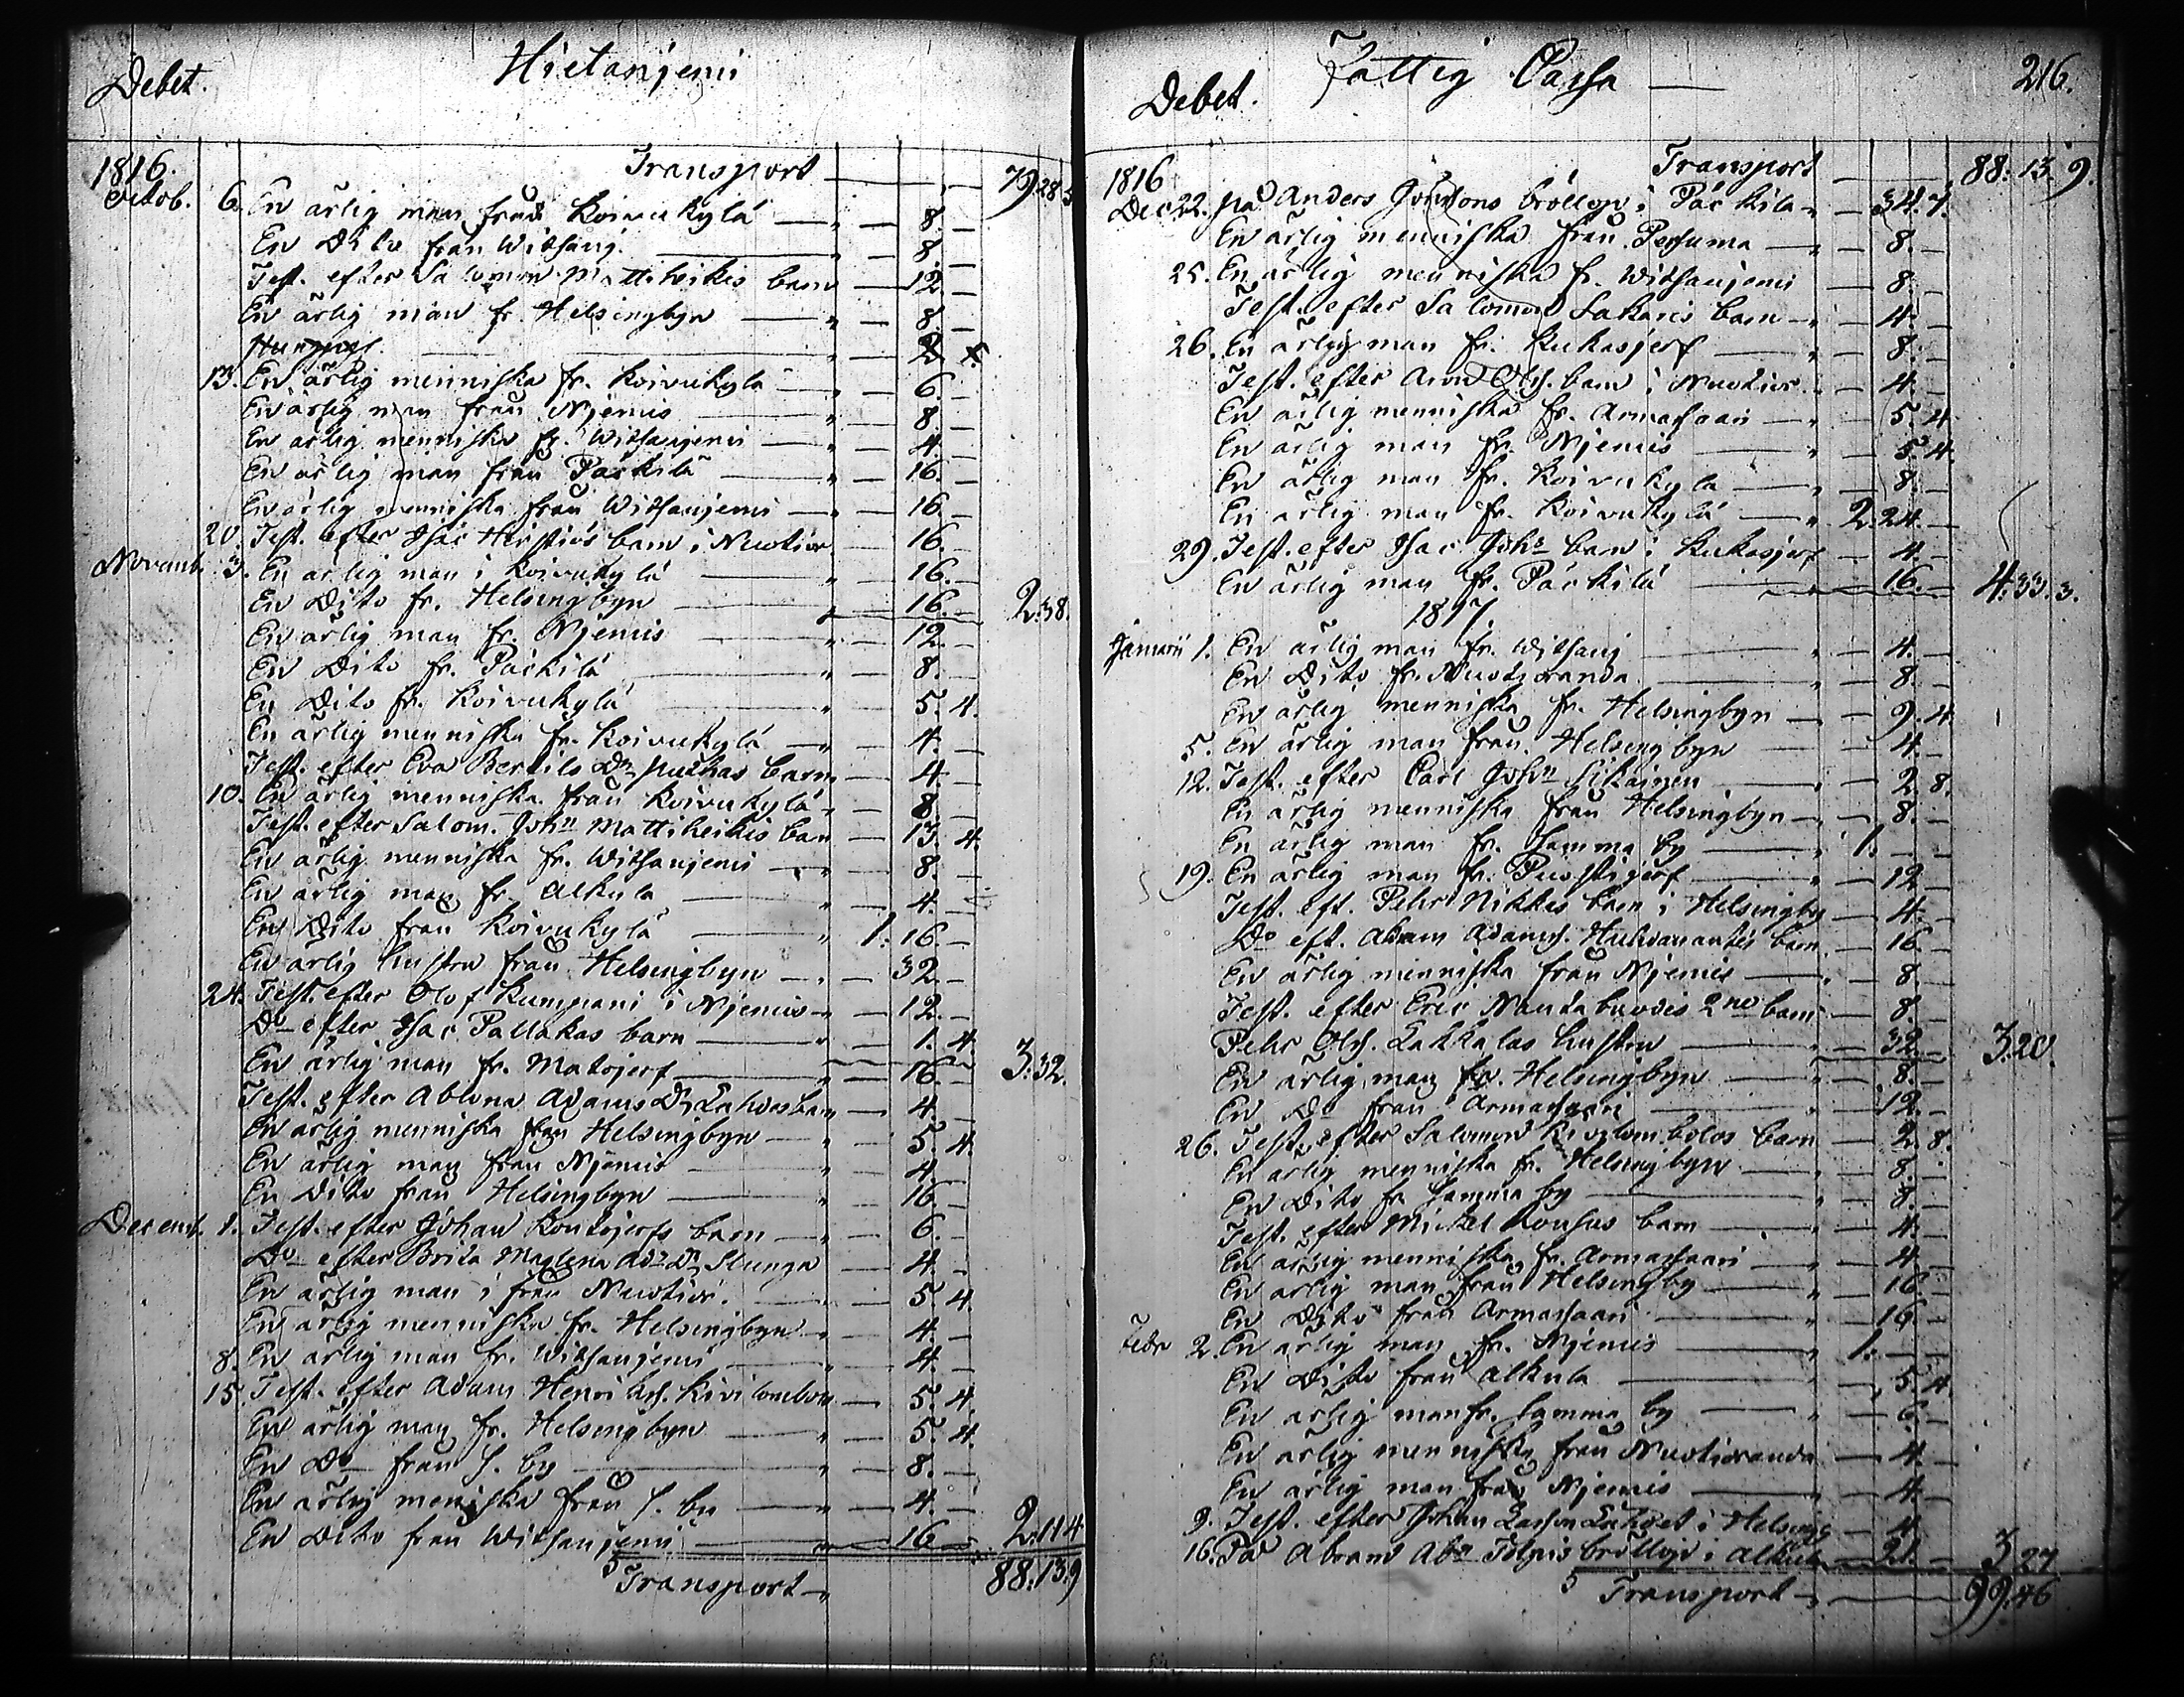 Debet. Hietanjemi
1816. Transport 79.28.5
Octob. 6. En ärlig man från Koivukylä 8.
En Dito från Witsanj. 8.
Test. efter Salomon Mattiheikis barn 12
En ärlig man fr. Helsingbyn 8.
13. En ärlig menniska fr. Koivukylä 6.
En ärlig man från Njemis 8.
En ärlig menniska fr. Witsanjemi 4.
En ärlig man från Päckilä 16.
En ärlig menniska från Witsanjemi 16.
20. Test. efter Isac barn i Nuotior 16.
Novemb. 3. En ärlig man i Koivukylä 16.
En Dito fr. Helsingbyn 16. 2.38.
En ärlig man fr. Njemis 12.
En Dito fr. Päckilä 8.
En Dito fr. Koivukylä 5. 4.
En ärlig menniska fr. Koivukylä 4.
Test. efter Eva Bertils Dr Puckas barn 4.
10. En ärlig menniska från Koivukylä 8.
Test. efter Salom. John Mattiheikis barn 13. 4.
En ärlig menniska fr. Witsanjemi 8.
En ärlig man fr. Alkula 4.
En Dito från Koivukylä 1. 16.
En ärlig hustru från Helsingbyn 32.
24. Test. efter Olof Kumpani i Njemis 12.
Do efter Isac Pallakas barn 1. 4.
En ärlig man fr. Matojerf 16. 3.32.
Test. efter Adams Dr barn 4.
En ärlig menniska från Helsingbyn 5. 4.
En ärlig man från Njemis 4.
En Dito från Helsingbyn 16.
Decemb. 1. Test. efter Johan Kontojerfs barn 6.
Do efter Brita Maglena Adr Dr Slunga 4.
En ärlig man i från Nuotior. 5. 4.
En ärlig menniska fr. Helsingbyn 4.
8. En ärlig man fr. Witsanjemi 4.
15. Test. efter Adam Henriks. Kivilombolo 5. 4.
En ärlig man fr. Helsingbyn 5. 4.
En Do från S. by 8.
En ärlig meniska från S. by 4.
En Dito från Witsanjemi 16 2.11.4
Transport 88.13.9
Debet. Fattig Cassa 216.
1816 Transport 88. 13. 9.
Dec. 22. på Anders bröllop i Päckilä 34. 7.
En ärlig menniska från 8.
25. En ärlig menniska fr. Witsanjemi 8.
Test. efter Salomon Sakaris barn 4.
26. En ärlig man fr. Kukasjerf 8.
Test. efter Aron Ols. barn i Nuotior 4.
En ärlig menniska fr. Armassaari 5. 4.
En ärlig man fr. Njemis 5. 4.
En ärlig man fr. Koivukylä 8.
En ärlig man fr. Koivukylä 2. 24.
29. Test. efter Isac Johs barn i Kukasjerf 4.
En ärlig man fr. Päckilä 16. 4.33.3.
1817.
Januarii 1. En ärlig man fr. Witsanj 4.
En Dito fr. Nuotioranda 8.
En ärlig menniska fr. Helsingbyn 9. 4.
5. En ärlig man från Helsingbyn 4.
12. Test. efter Carl Johsn Sikainen 2. 8.
En ärlig menniska från Helsingbyn 8.
En ärlig man fr. Samma by 1.
19. En ärlig man fr. Puostijerf 12
Test. eft. Pehr Nikkes barn i Helsingby 4.
Do eft. Adam Adams. barn 16
En ärlig menniska från Njemis 8.
Test. efter Eric 2ne barn 8.
Pehr Ols. Lakkalas hustru 32. 3.20.
En ärlig man fr. Helsingbyn 8.
En Do från Armassaari 12.
26. Test. efter Salomon Kivilombolos barn 2. 8.
En ärlig menniska fr. Helsingbyn 8.
En Dito fr Samma by 8.
Test. efter Mickel barn 4.
En ärlig menniska fr. Armassaari 4.
En ärlig man från Helsingby 16
En Dito från Armassaari 16
Febr 2. En ärlig man fr. Njemis 1.
En Dito från Alkula 5. 4.
En ärlig man fr. Samma by 6.
En ärlig menniska från Nuotioranda 4.
En ärlig man från Njemis 4.
9. Test. efter Johan Larsson i Helsingb 4.
16. På Abrams bröllop i Alkula 21. 3 27
Transport 99.46